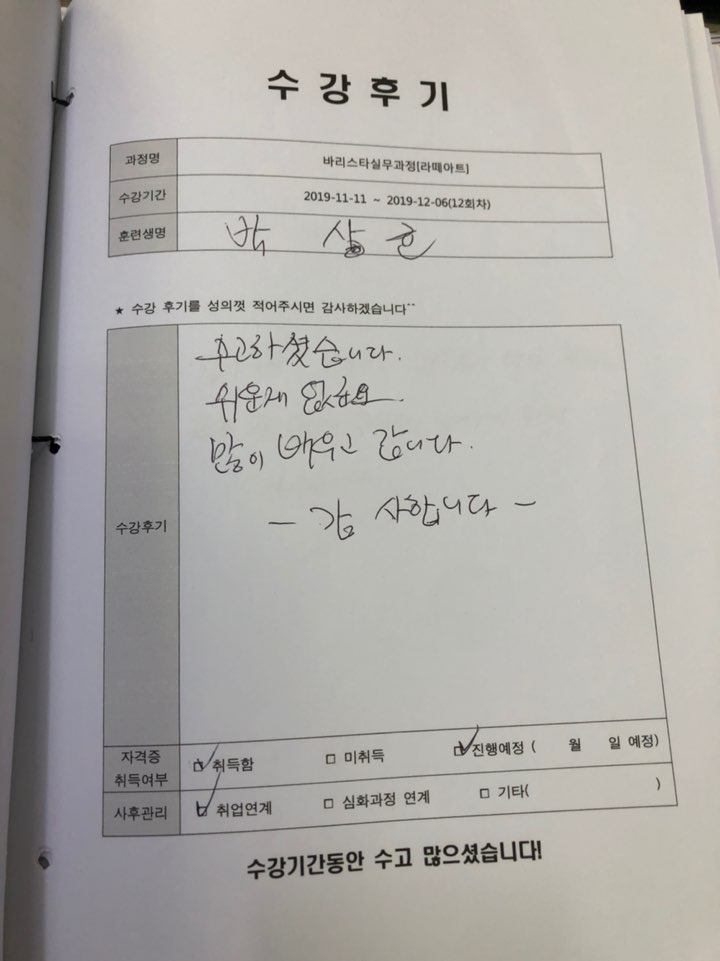 수강후기
과정명 바리스타실무과정[라떼아트]
수강기간 2019-11-11 ~ 2019-12-06(12회차)
훈련생명 박 상
★ 수강 후기를 성의껏 적어주시면 감사하겠습니다^^
수강후기
수고하셨습니다.
쉬운게 없군요.
많이 배우고 갑니다.
- 감 사합니다 -
자격증 취득여부 □ 취득함 □ 미취득 □ 진행예정 ( 월 일 예정)
사후관리 □ 취업연계 □ 심화과정 연계 □ 기타( )
수강기간동안 수고 많으셨습니다!